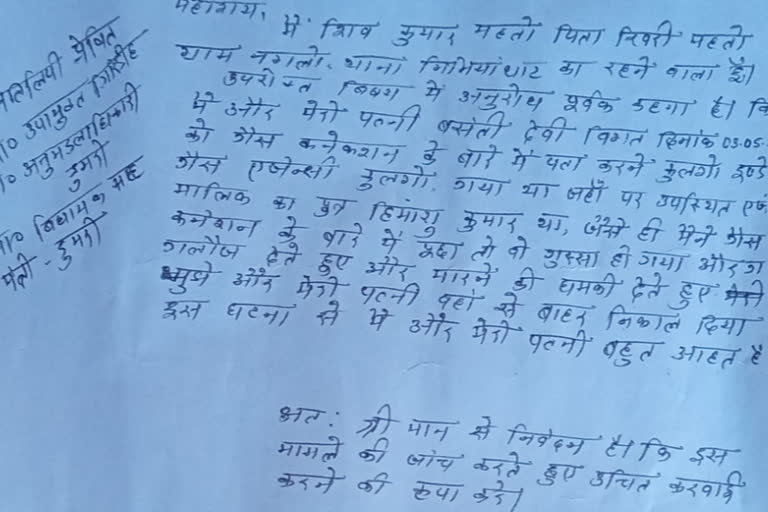 महाशय,
मैं शिव कुमार महतो पिता महतो
ग्राम नगलो, थाना निमियांघाट का रहने वाला हूँ।
उपरोक्त विषय में अनुरोध पूर्वक कहना है। कि
मैं और मेरी पत्नी बसंती देवी विगत दिनांक 03.05.
को गैस कनेकशन के बारे में पता करने कुलगो इण्डे
गैस एजेन्सी कुलगो. गया था जहाँ पर उपस्थित एजें
मालिक का पुत्र हिमांशु कुमार था, जैसे ही मैंने गैस
कनेशन के बारे में पूछा तो वो गुस्सा हो गया और ग
गलौज देते हुए और मारने की धमकी देते हुए
मुझे और मेरी पत्नी वहाँ से बाहर निकाल दिया
इस घटना से मैं और मेरी पत्नी बहुत आहत है
अत: श्री मान से निवेदन है। कि इस
मामले की जांच करते हुए उचित करवाई
करने की कृपा करें।
प्रेषित
उपायुक्त गिरिडीह
अनुमंडलाधिकारी
डुमरी
विधायक सह
मंत्री - डुमरी